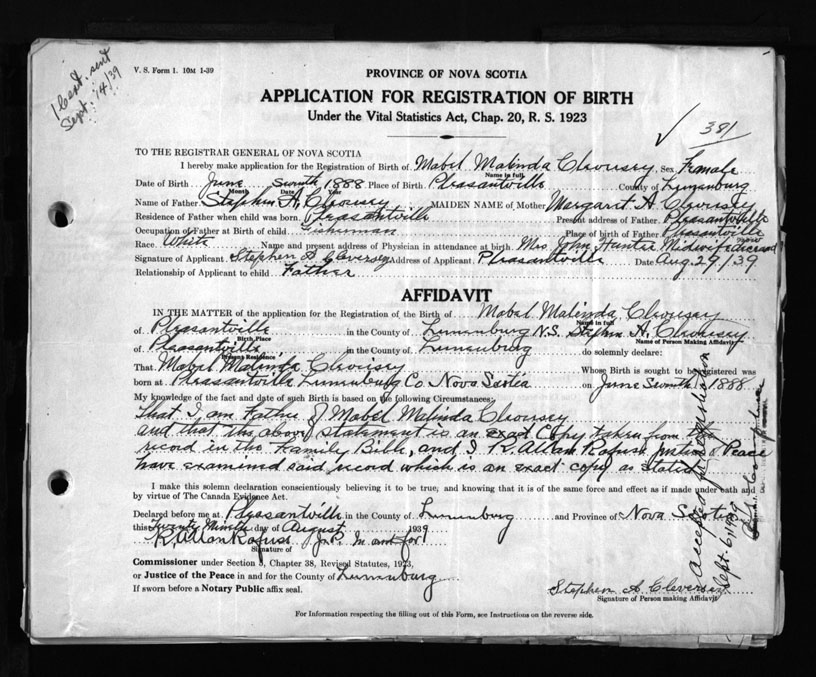 1 Cert. sent
Sept. 14/39
V. S. Form 1. 10M 1-39
PROVINCE OF NOVA SCOTIA
APPLICATION FOR REGISTRATION OF BIRTH
Under the Vital Statistics Act, Chap. 20, R. S. 1923
381
TO THE REGISTRAR GENERAL OF NOVA SCOTIA
I hereby make application for the Registration of Birth of Mabel Malinda Cleversey Sex Female
Name in full
Date of Birth June Seventh 1888 Place of Birth Pleasantville County of Lunenburg
Month Day Year
Name of Father Stephen A. Cleversey MAIDEN NAME of Mother Margaret A. Cleversey
Residence of Father when child was born Pleasantville Present address of Father Pleasantville
Occupation of Father at Birth of child Fisherman Place of birth of Father Pleasantville
Race White Name and present address of Physician in attendance at birth Mrs John Hunter Midwife deceased
Signature of Applicant Stephen A Cleversey Address of Applicant Pleasantville Date Aug 29/39
Relationship of Applicant to child Father
AFFIDAVIT
IN THE MATTER of the application for the Registration of the Birth of Mabel Malinda Cleversey
Name in full
of Pleasantville in the County of Lunenburg N.S. Stephen A. Cleversey
Birth Place Name of Person Making Affidavit
of Pleasantville in the County of Lunenburg do solemnly declare:
Present Residence
That Mabel Malinda Cleversey Whose Birth is sought to be registered was
born at Pleasantville Lunenburg Co. Nova Scotia on June Seventh 1888
My knowledge of the fact and date of such Birth is based on the following Circumstances:
That I, am Father of Mabel Malinda Cleversey
and that the above statement is an exact Copy taken from
record in the Family Bible, and I R. Allan Rafuse Justice of Peace
have examined said record which is an exact copy as stated
I make this solemn declaration conscientiously believing it to be true, and knowing that it is of the same force and effect as if made under oath and
by virtue of The Canada Evidence Act.
Declared before me at Pleasantville in the County of Lunenburg and Province of Nova Scotia
this Twenty Ninth day of August 1939
R. Allan Rafuse J.P. In and for
Signature of
Commissioner under Section 5, Chapter 38, Revised Statutes, 1923,
or Justice of the Peace in and for the County of Lunenburg
If sworn before a Notary Public affix seal.
Stephen A Cleversey
Signature of Person making Affidavit
For Information respecting the filling out of this Form, see Instructions on the reverse side.
Accepted for registration
Sept. 6, 1939